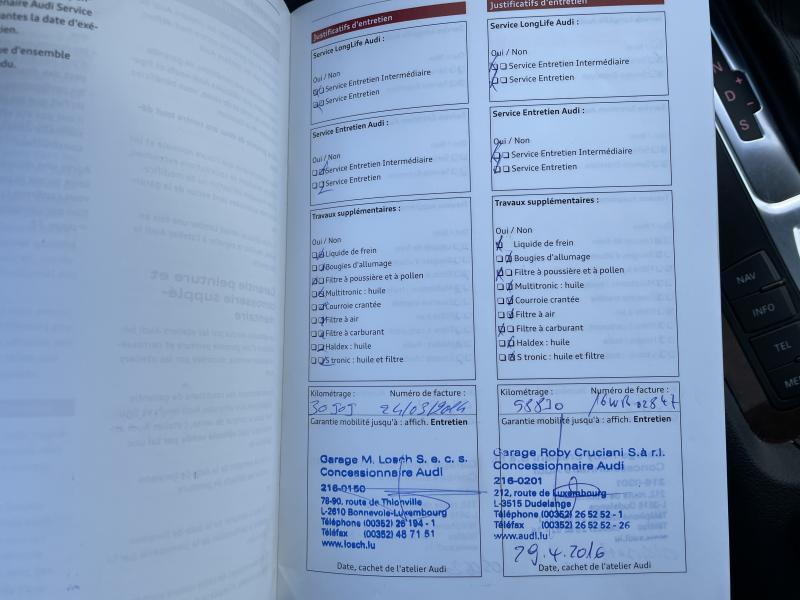 enaire Audi Service
antes la date d'exé-
ien.
e d'ensemble
du.
Justificatifs d'entretien
Service LongLife Audi :
Oui / Non
Service Entretien Intermédiaire
Service Entretien
Service Entretien Audi :
Oui / Non
Service Entretien Intermédiaire
Service Entretien
Travaux supplémentaires :
Oui / Non
Liquide de frein
Bougies d'allumage
Filtre à poussière et à pollen
Multitronic : huile
Courroie crantée
Filtre à air
Filtre à carburant
Haldex : huile
S tronic : huile et filtre
Kilométrage : Numéro de facture :
24/03/2014
Garantie mobilité jusqu'à : affich. Entretien
Garage M. Losch S. e. c. s.
Concessionnaire Audi
216-0150
78-90, route de Thionville
L-2610 Bonnevoie-Luxembourg
Téléphone (00352) 26 194 - 1
Téléfax (00352) 48 71 51
www.losch.lu
Date, cachet de l'atelier Audi
Justificatifs d'entretien
Service LongLife Audi :
Oui / Non
Service Entretien Intermédiaire
Service Entretien
Service Entretien Audi :
Oui / Non
Service Entretien Intermédiaire
Service Entretien
Travaux supplémentaires :
Oui / Non
Liquide de frein
Bougies d'allumage
Filtre à poussière et à pollen
Multitronic : huile
Courroie crantée
Filtre à air
Filtre à carburant
Haldex : huile
S tronic : huile et filtre
Kilométrage : Numéro de facture :
Garantie mobilité jusqu'à : affich. Entretien
Garage Roby Cruciani S.à r.l.
Concessionnaire Audi
216-0201
212, route de Luxembourg
L-3515 Dudelange
Téléphone (00352) 26 52 52 - 1
Téléfax (00352) 26 52 52 - 26
www.audi.lu
29.4.2016
Date, cachet de l'atelier Audi
N
+
D
-
S
NAV
INFO
TEL
ME